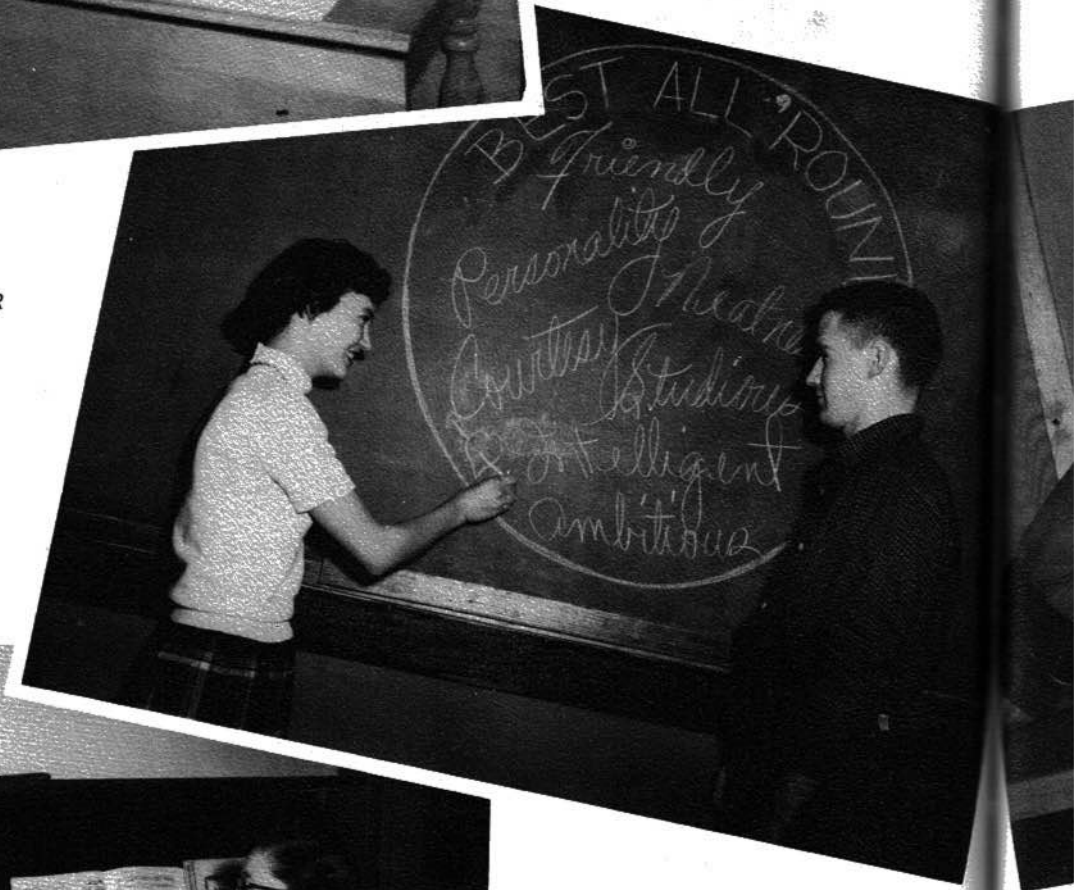 R
BEST ALL 'ROUN
Friendly
Personality
Neatne
Courtesy
Studious
Intelligent
ambitious